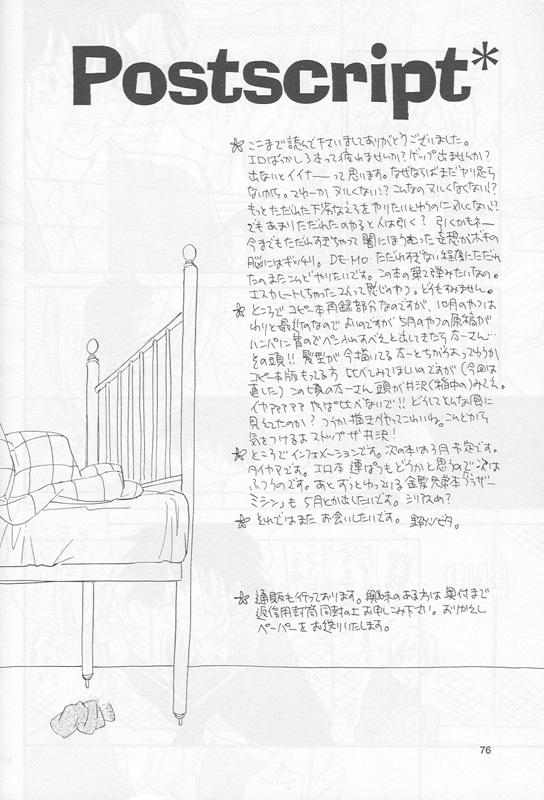 Postscript*
☆ ここまで読んで下さいましてありがとうございました。
エロばっかし3本って疲れませんか?ゲップ出ませんか?
出ないとイイナーって思います。なぜならばまだヤリ足ら
ないから。てゆーかヌルくない!?こんなのヌルくなくない!?
もっとただれた下劣なエロをやりたいとゆうのにヌルじゃない!?
でもあまりただれたのやると人は引く?引くかもネー
今までもただれすぎちゃって闇にほうむった妄想がボキの
脳にはギッチリ。DE・MO・ただれすぎない程度にただれ
たのまたこんどやりたいです。この本の
エスカレートしちゃった2人って感じのやつ。どうもすみません。
☆ ところでコピー本再録部分なのですが、10月のやつは
わりと最近のなのでよいのですが5月のやつの原稿が
ハンパに昔のでぺーんすべぇと出してきたら
その頭!!髪型が今描いてる
コピー本版もってる方 比べてみてほしいのですが(今回は
直した)この頃の 頭が井沢(稲中の)みてぇ。
イヤァァァァァ やっぱ比べないで!!どうしてそんな風に
見えてたのか?つうか描きやがってこわいね。こんどから
気をつけるよ ストップ ザ 井沢!
☆ ところでインフォメーションです。次の本は3月予定です。
ダイヤです。エロ本連ぱつもどうかと思うので次は
ふつうのです。あとずっとゆってる金髪兄弟本「ブラザー
ミシン」も5月とか出したいです。シリアスめ?
☆ それではまた お会いしたいです。
☆ 通販も行っております。興味のある方は奥付まで
返信用封筒同封の上 お申しこみ下さい。おりかえし
ペーパーをお送りいたします。
76